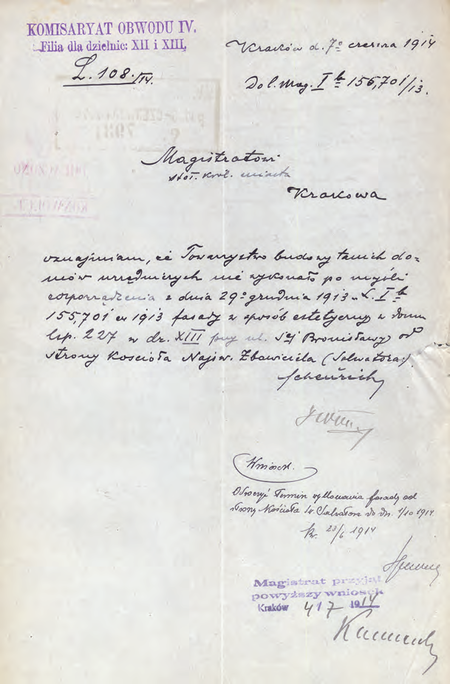 KOMISARYAT OBWODU IV.
Filia dla dzielnic: XII i XIII,
L. 108/14.
Kraków d. 7º czerwca 1914
Do l. Mag. I b 155,701/13.
Magistratowi
stoł. król. miasta
Krakowa
oznajmiam, że Towarzystwo budowy tanich do-
mów urzędniczych nie wykonało po myśli
rozporządzenia z dnia 29º grudnia 1913 L. I b
155,701 w 1913 fasady w sposób estetyczny w domu
lsp. 227 w dz. XIII przy ul. Sej Bronisławy od
strony Kościoła Najśw. Zbawiciela (Salwatora).
Wniosek.
Odroczyć termin fasady od
strony Kościoła św Salvatora do dn. 1/10 1914
Kr. 23/6 1914
Magistrat przyjął
powyższy wniosek
Kraków 4 17 1914